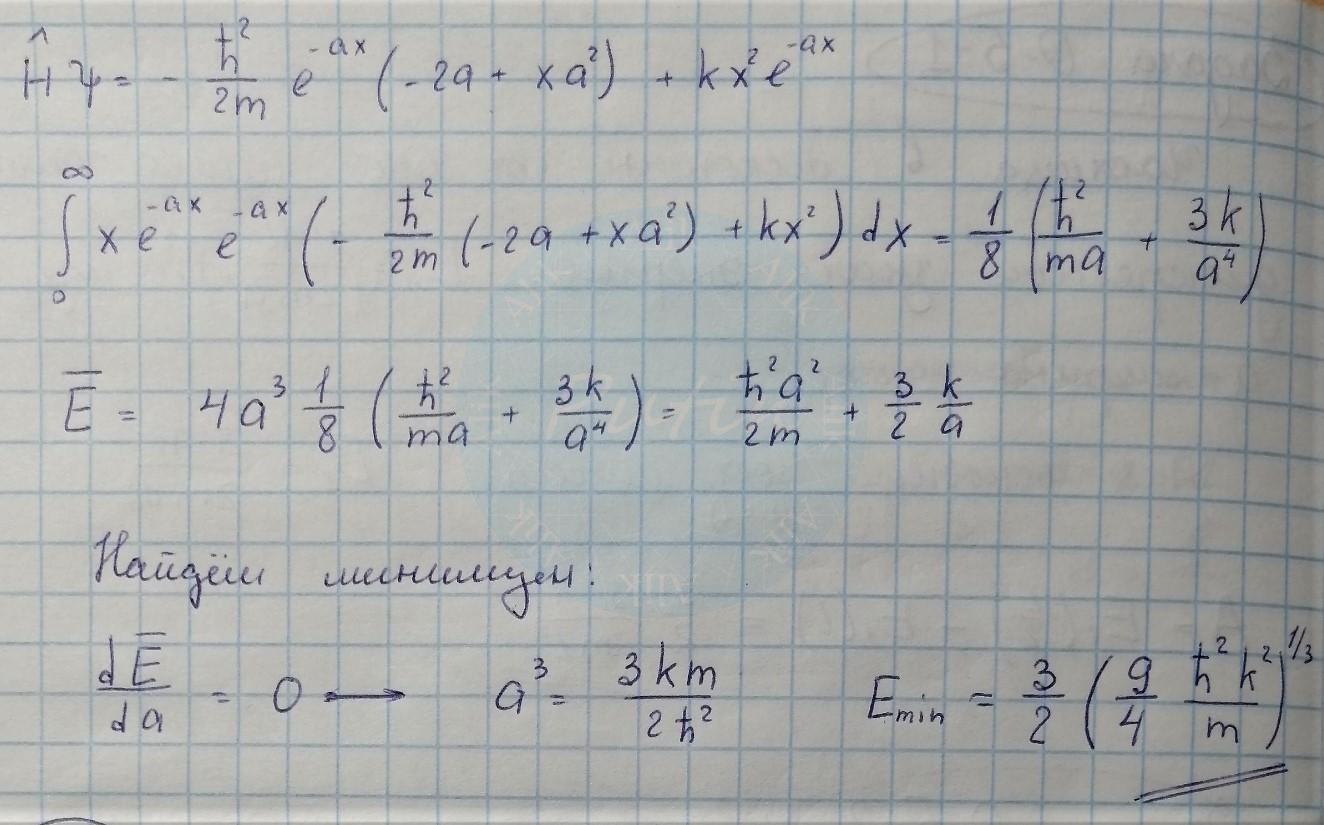 Ĥψ = - ħ²/2m e^{-ax} (-2a + xa²) + kx² e^{-ax}
∫₀^∞ x e^{-ax} e^{-ax} (- ħ²/2m (-2a + xa²) + kx²) dx = 1/8 (ħ²/ma + 3k/a⁴)
E̅ = 4a³ 1/8 (ħ²/ma + 3k/a⁴) = ħ²a²/2m + 3/2 k/a
Найдём минимум:
dE̅/da = 0 ⟶ a³ = 3km/2ħ² E_min = 3/2 (9/4 ħ²k²/m)^{1/3}